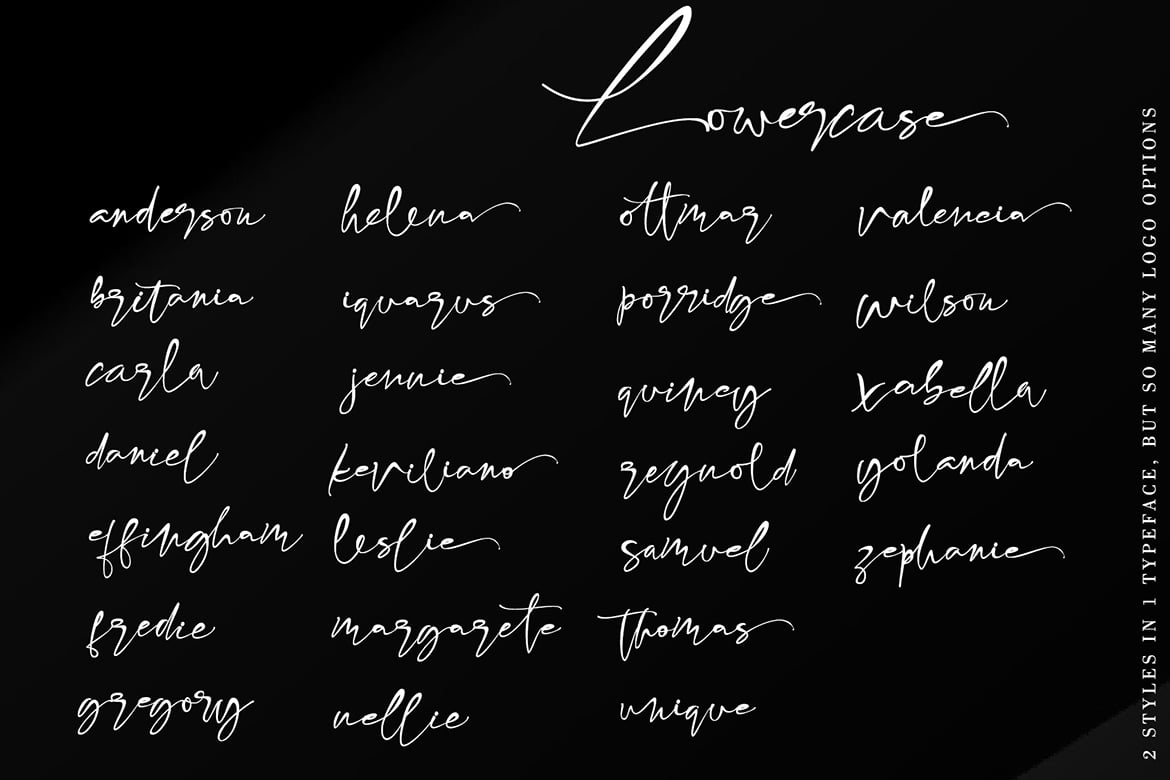 Lowercase
anderson
britania
carla
daniel
effingham
fredie
gregory
helena
iquarus
jennie
keviliano
leslie
margarete
nellie
ottmar
porridge
quiney
reynold
samuel
thomas
unique
valencia
wilson
xabella
yolanda
zephanie
2 STYLES IN 1 TYPEFACE, BUT SO MANY LOGO OPTIONS